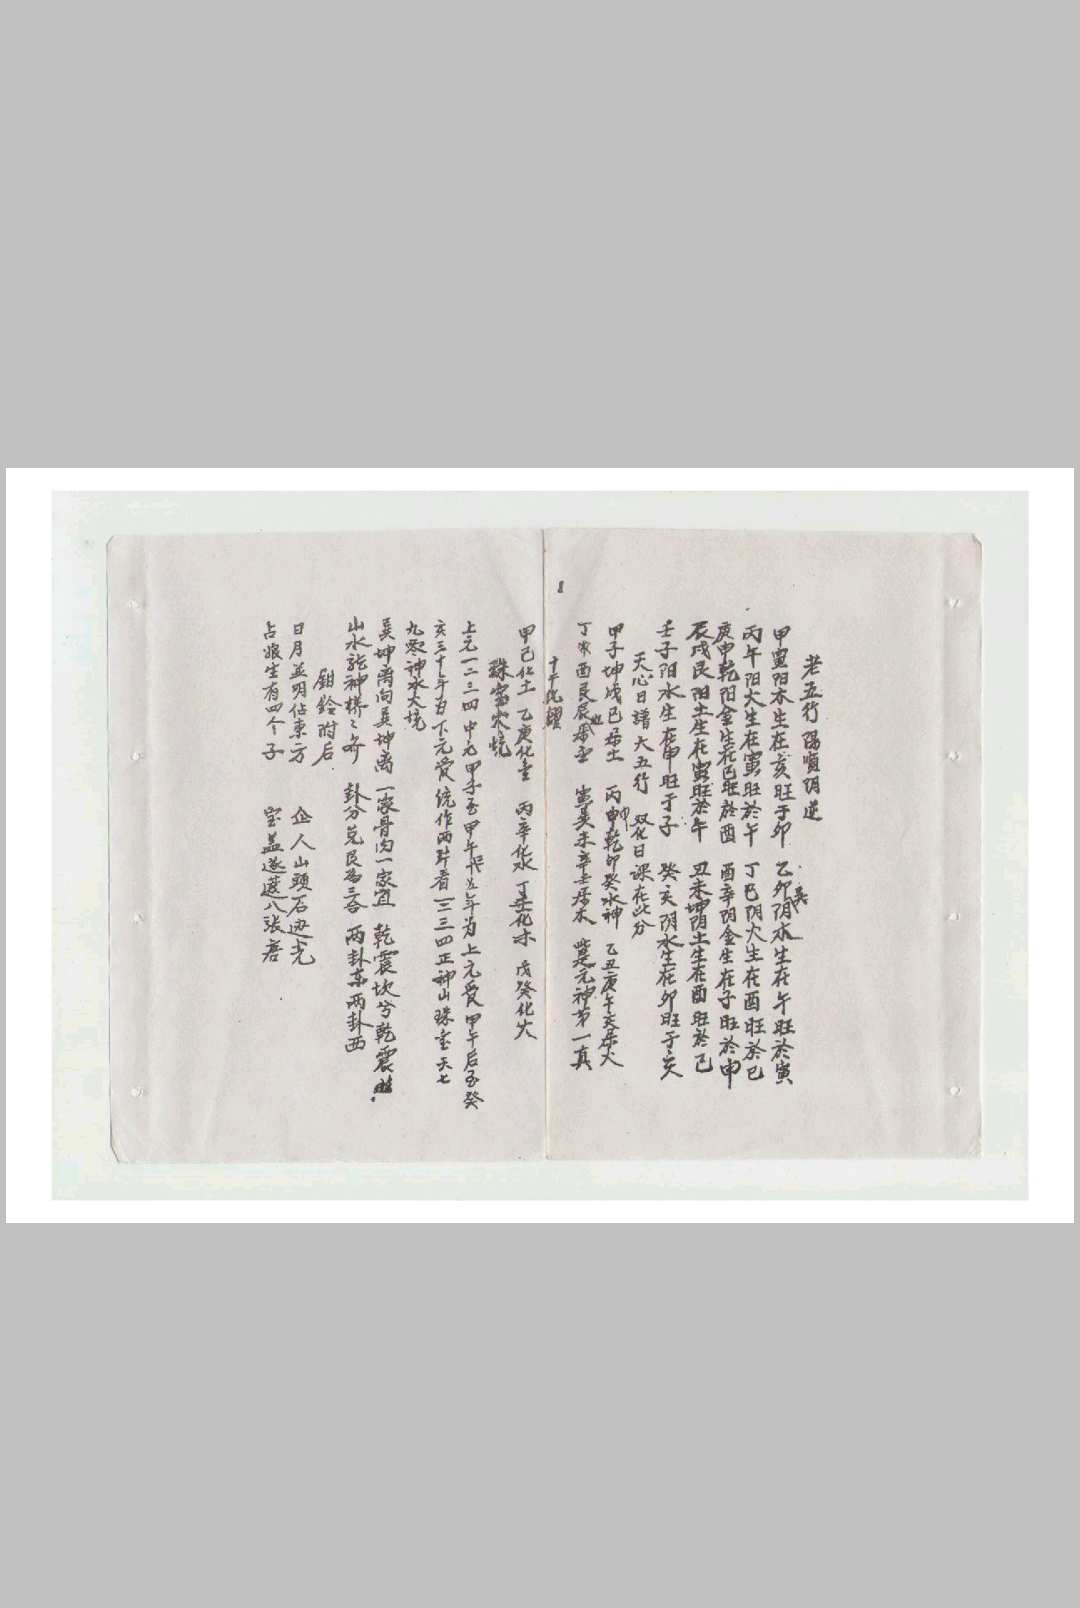 老五行 陽順阴逆
甲寅阳木生在亥旺于卯 乙卯阴木生在午旺於寅
巽
丙午阳火生在寅旺於午 丁巳阴火生在酉旺於巳
庚申乾阳金生在巳旺於酉 酉辛阴金生在子旺於申
辰戌艮阳土生在寅旺於午 丑未坤阴土生在酉旺於巳
壬子阳水生在申旺于子 癸亥阴水生在卯旺于亥
天心日譜大五行 双化日深在此分
甲子坤戌巳居土 丙申乾卯癸水神 乙丑庚午亥居火
丁 酉艮辰居金 寅巽未辛壬居木 此是元神第一真
1
十干化耀
甲己化土 乙庚化金 丙辛化水 丁壬化木 戊癸化火
珠宝火坑
上元一二三四 中元甲子至甲午 五年为上元爱 甲午后至癸
亥三十年为下元爱 统作两片看 一二三四正神山珠宝 六七
九零神水火坑
巽坤离向巽坤离 一家骨肉一家宜 乾震坎兮乾震
山水龍神様々奇 卦分兑艮為三合 两卦东两卦西
鉗鈴附后
日月並明佔東方 企人山頭石边光
占娘生有四个子 宝盖遂 八張唐